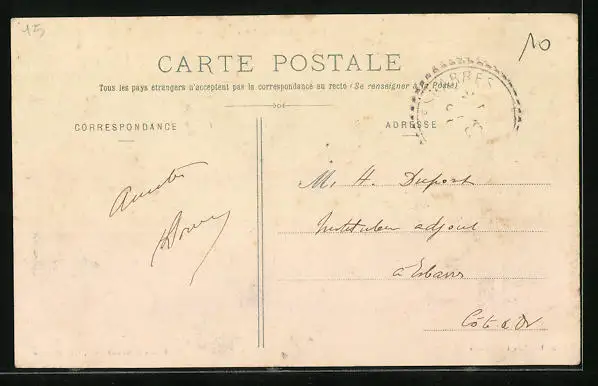 15
10
CARTE POSTALE
Tous les pays étrangers n'acceptent pas la correspondance au recto (Se renseigner à la Poste)
CORRESPONDANCE
ADRESSE
Amitiés
M. H. Dupont
Instituteur adjoint
à
Côte d'Or